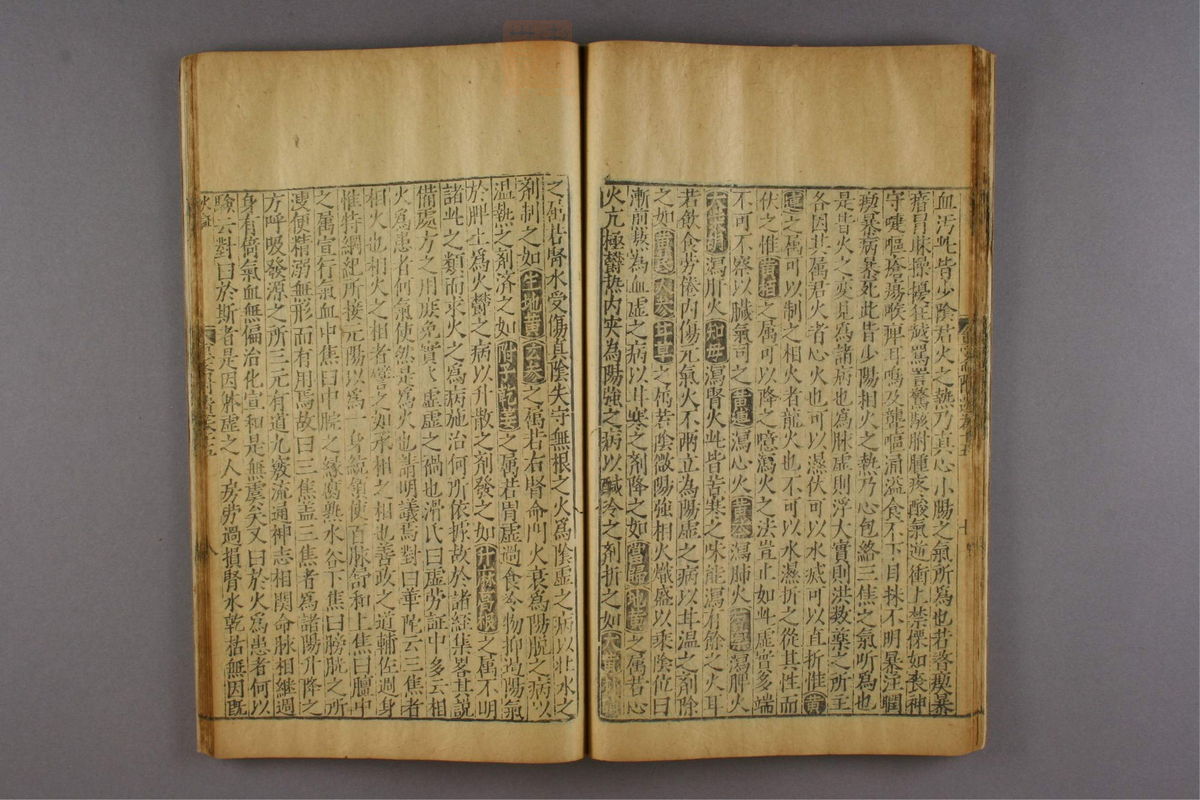 血汚此皆少陰君火之熱乃真心小腸之氣所為也若瞀瘈暴
瘖冒昧躁擾狂越罵詈驚駭胕腫疼酸氣逆衝上禁慄如喪神
守嚏嘔瘡瘍喉痺耳鳴及聾嘔涌溢食不下目昧不明暴注瞤
瘈暴病暴死此皆少陽相火之熱乃心包絡三焦之氣所為也
是皆火之變見為諸病也為脉虛則浮大實則洪數藥之所主
各因其属君火者心火也可以濕伏可以水㓕可以直折惟黃
連之属可以制之相火者龍火也不可以水濕折之從其性而
伏之惟黃栢之属可以降之噫瀉火之法豈止如此虛實多端
不可不察以臟氣司之黃連瀉心火黃芩瀉肺火芍藥瀉脾火
瀉肝火知母瀉腎火此皆苦寒之味能瀉有餘之火耳
若飲食勞倦內傷元氣火不兩立為陽虛之病以甘温之劑除
之如黃芪人參甘草之属若陰微陽強相火熾盛以乘陰位日
漸煎熬為血虛之病以甘寒之劑降之如當歸地黃之属若心
火亢極鬱热內实為陽強之病以鹹冷之劑折之如大黃朴硝
之属若腎水受傷真陰失守無根之火為陰虛之病以壯水之
劑制之如生地黃玄参之属若右腎命門火衰為陽脫之病以
温熱之劑济之如附子乾姜之属若胃虛過食冷物抑遏陽氣
於脾土為火鬱之病以升散之劑發之如升麻葛根之属不明
諸此之類而求火之為病施治何所依據故於諸經集畧其說
備處方之用庶免實實虛虛之禍也滑氏曰虛勞証中多云相
火為患者何氣使然是為火也請明議焉對曰華佗云三焦者
相火也相火之相者譬之如丞相之相也善政之道輔佐週身
惟持綱紀所接元陽以為一身統領使百脉舒和上焦曰膻中
之属宣行氣血中焦曰中脘之緣腐熟水谷下焦曰膀胱之所
溲便精溺無形而有用焉故曰三焦盖三焦者為諸陽升降之
方呼吸發源之所三元有道九竅流通神志相関命脉相継週
身有衛氣血無偏治化宣和是無虞矣又曰於火為患者何以
驗云對曰於斯者是因体虛之人房勞過損腎水乾枯無因既
火証
八